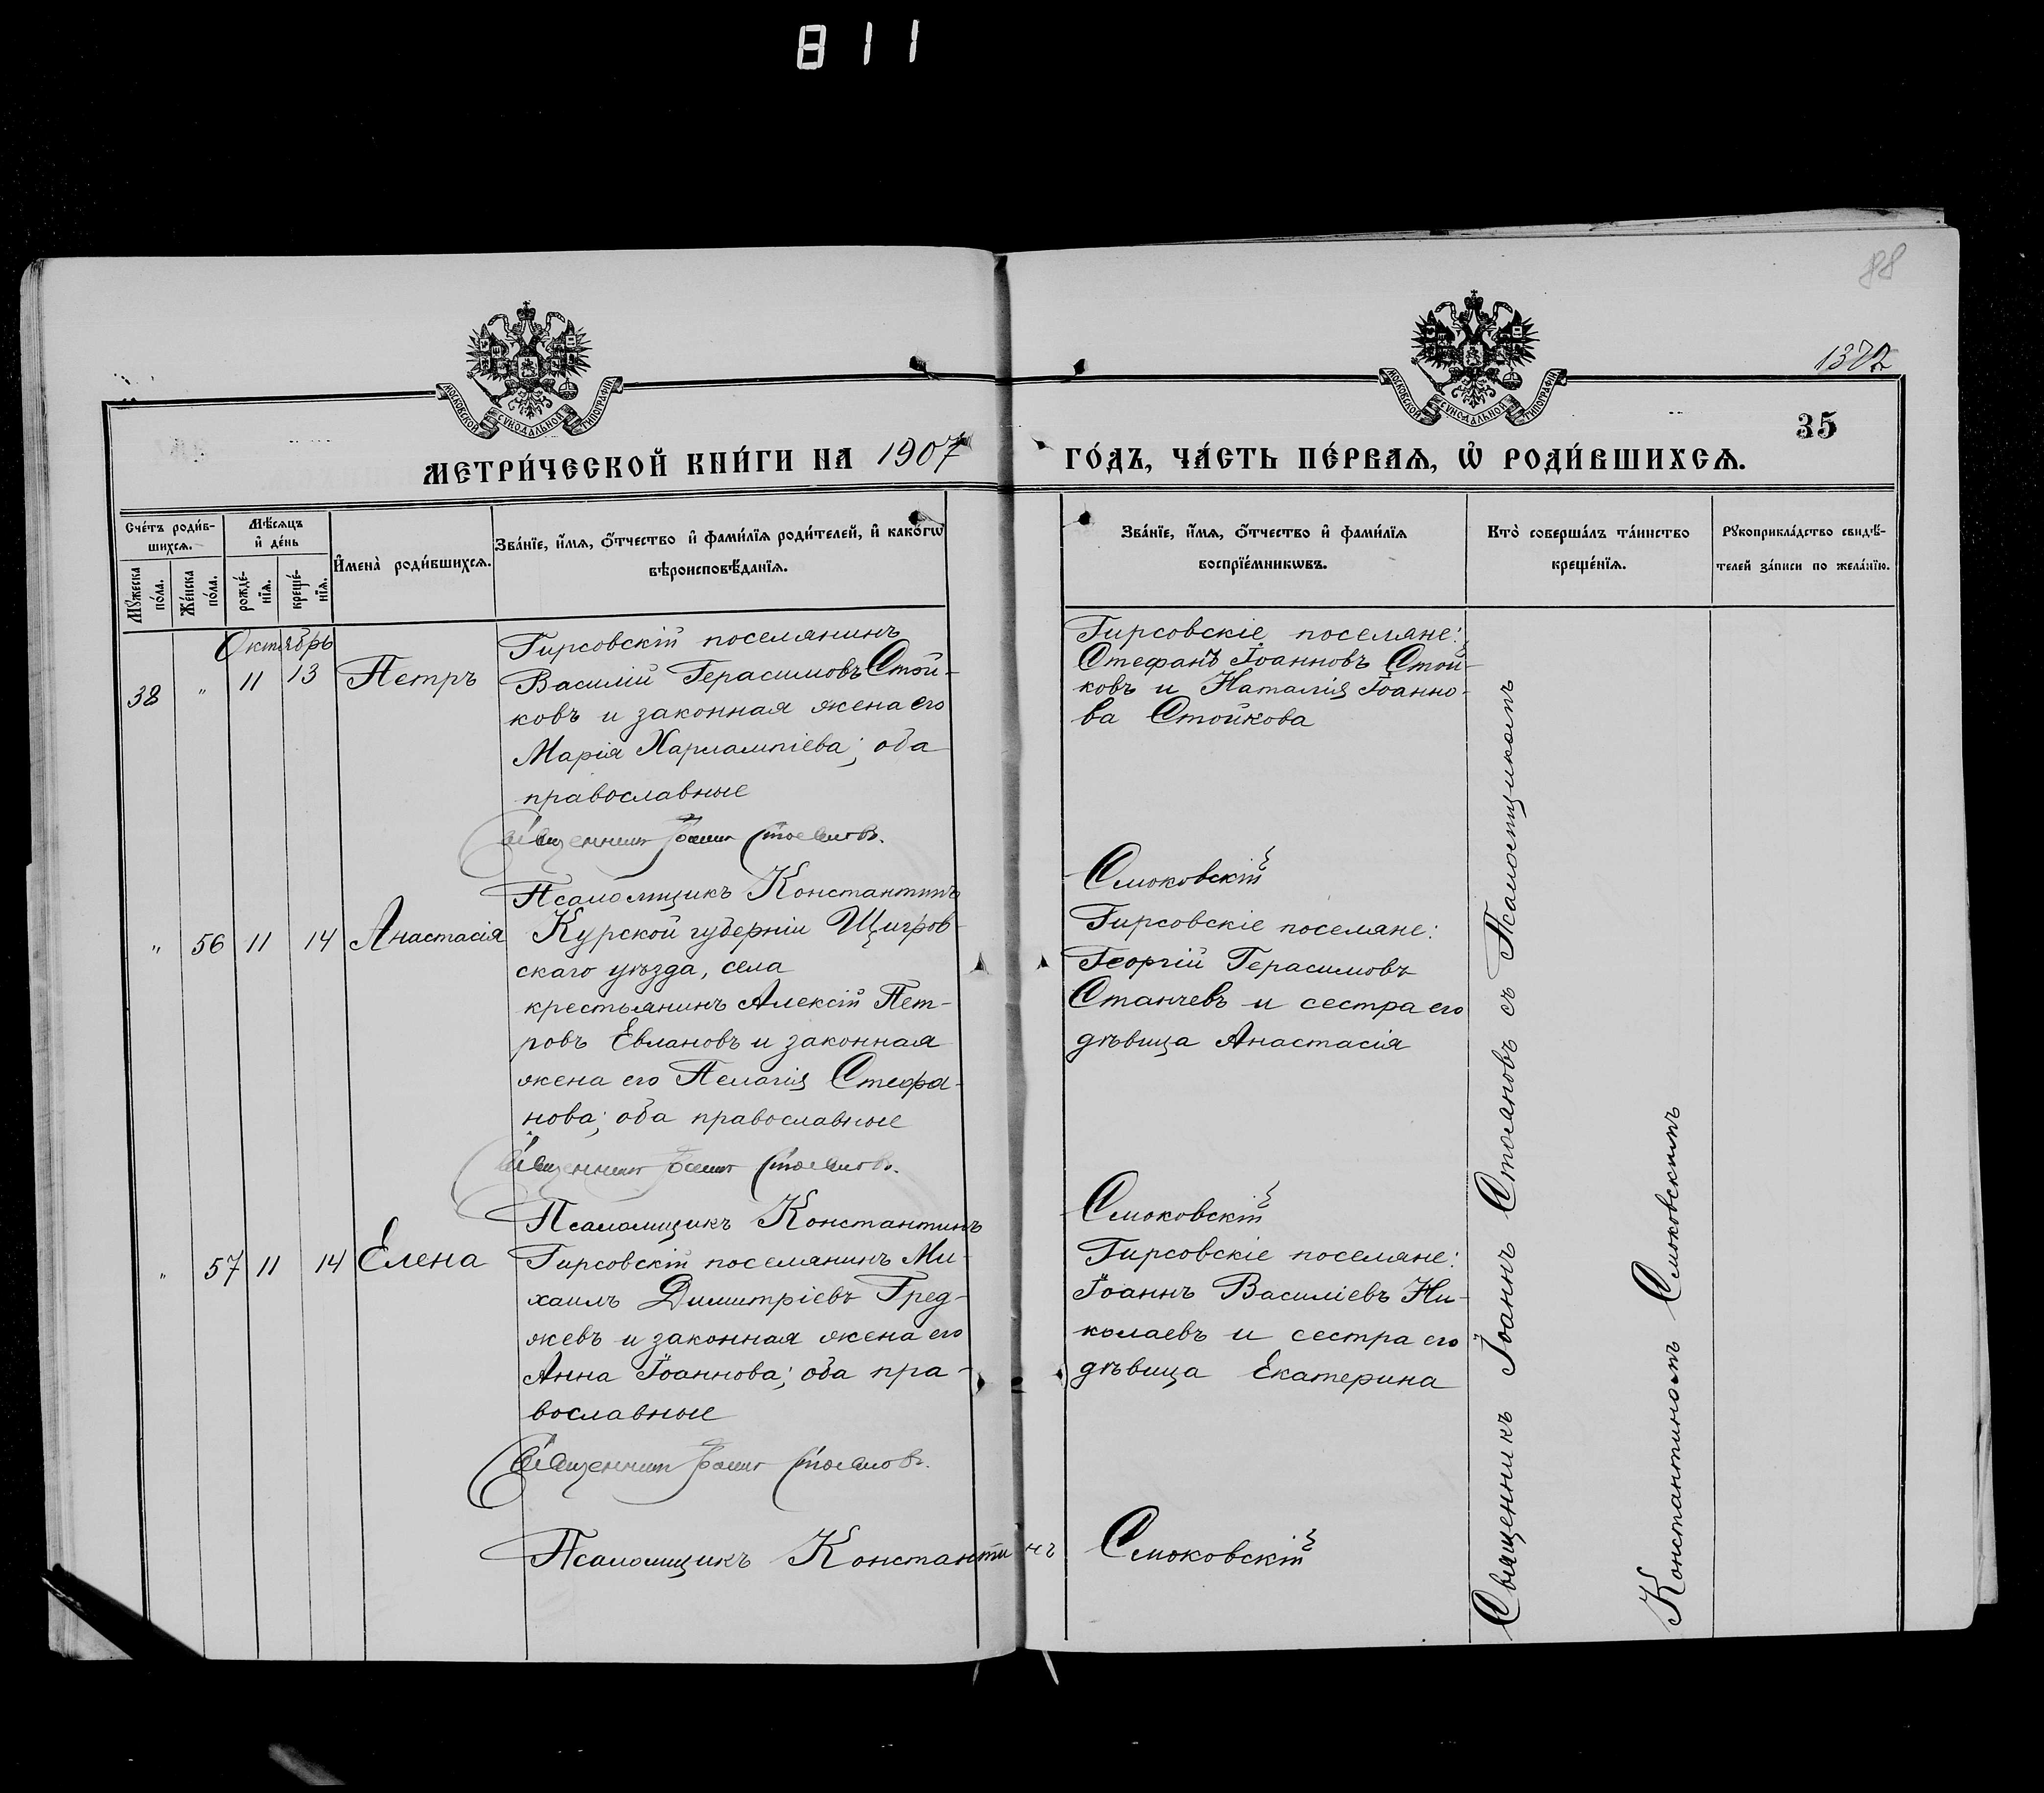 811
88
1372
35
МОСКОВСКОЙ СѴНОДАЛЬНОЙ ТИПОГРАФІИ
МОСКОВСКОЙ СѴНОДАЛЬНОЙ ТИПОГРАФІИ
МЕТРИ́ЧЕСКОЙ КНИ́ГИ НА 1907 ГО́ДЪ, ЧА́СТЬ ПЕ́РВАѦ, Ѡ҆ РОДИ́ВШИХСѦ.
Сче́тъ роди́в-
шихсѧ.
Мꙋ́жеска по́ла.
Же́нска по́ла.
Мѣ́сѧцъ и҆ де́нь
рожде́-нїѧ.
креще́-нїѧ.
И҆мена̀ роди́вшихсѧ.
Зва́нїе, и҆́мѧ, ѻ҆́тчество и҆ фами́лїѧ роди́телей, и҆ како́гѡ
вѣроисповѣ́данїѧ.
Зва́нїе, и҆́мѧ, ѻ҆́тчество и҆ фами́лїѧ
воспрїе́мникѡвъ.
Кто̀ соверша́лъ та́инство
креще́нїѧ.
Рꙋкоприкла́дство свидѣ́-
телей за́писи по жела́нїю.
Октябрь
38 " 11 13 Петръ
Гирсовскій поселянинъ
Василій Герасимовъ Стой-
ковъ и законная жена его
Марія Харлампіева; оба
православные
Священникъ Іоаннъ Столновъ.
Псаломщикъ Константинъ Смоковскій
Гирсовскіе поселяне:
Стефанъ Іоанновъ Стой-
ковъ и Наталія Іоанно-
ва Стойкова
" 56 11 14 Анастасія
Курской губерніи Щигров-
скаго уѣзда, села
крестьянинъ Алексій Пет-
ровъ Евлановъ и законная
жена его Пелагія Стефа-
нова; оба православные
Священникъ Іоаннъ Столновъ.
Псаломщикъ Константинъ Смоковскій
Гирсовскіе поселяне:
Георгій Герасимовъ
Станчевъ и сестра его
дѣвица Анастасія
" 57 11 14 Елена
Гирсовскій поселянинъ Ми-
хаилъ Димитріевъ Гред-
жевъ и законная жена его
Анна Іоаннова; оба пра-
вославные
Священникъ Іоаннъ Столновъ.
Псаломщикъ Константинъ Смоковскій
Гирсовскіе поселяне:
Іоаннъ Василіевъ Ни-
колаевъ и сестра его
дѣвица Екатерина
Священникъ Іоаннъ Столновъ съ Псаломщикомъ
Константиномъ Смоковскимъ